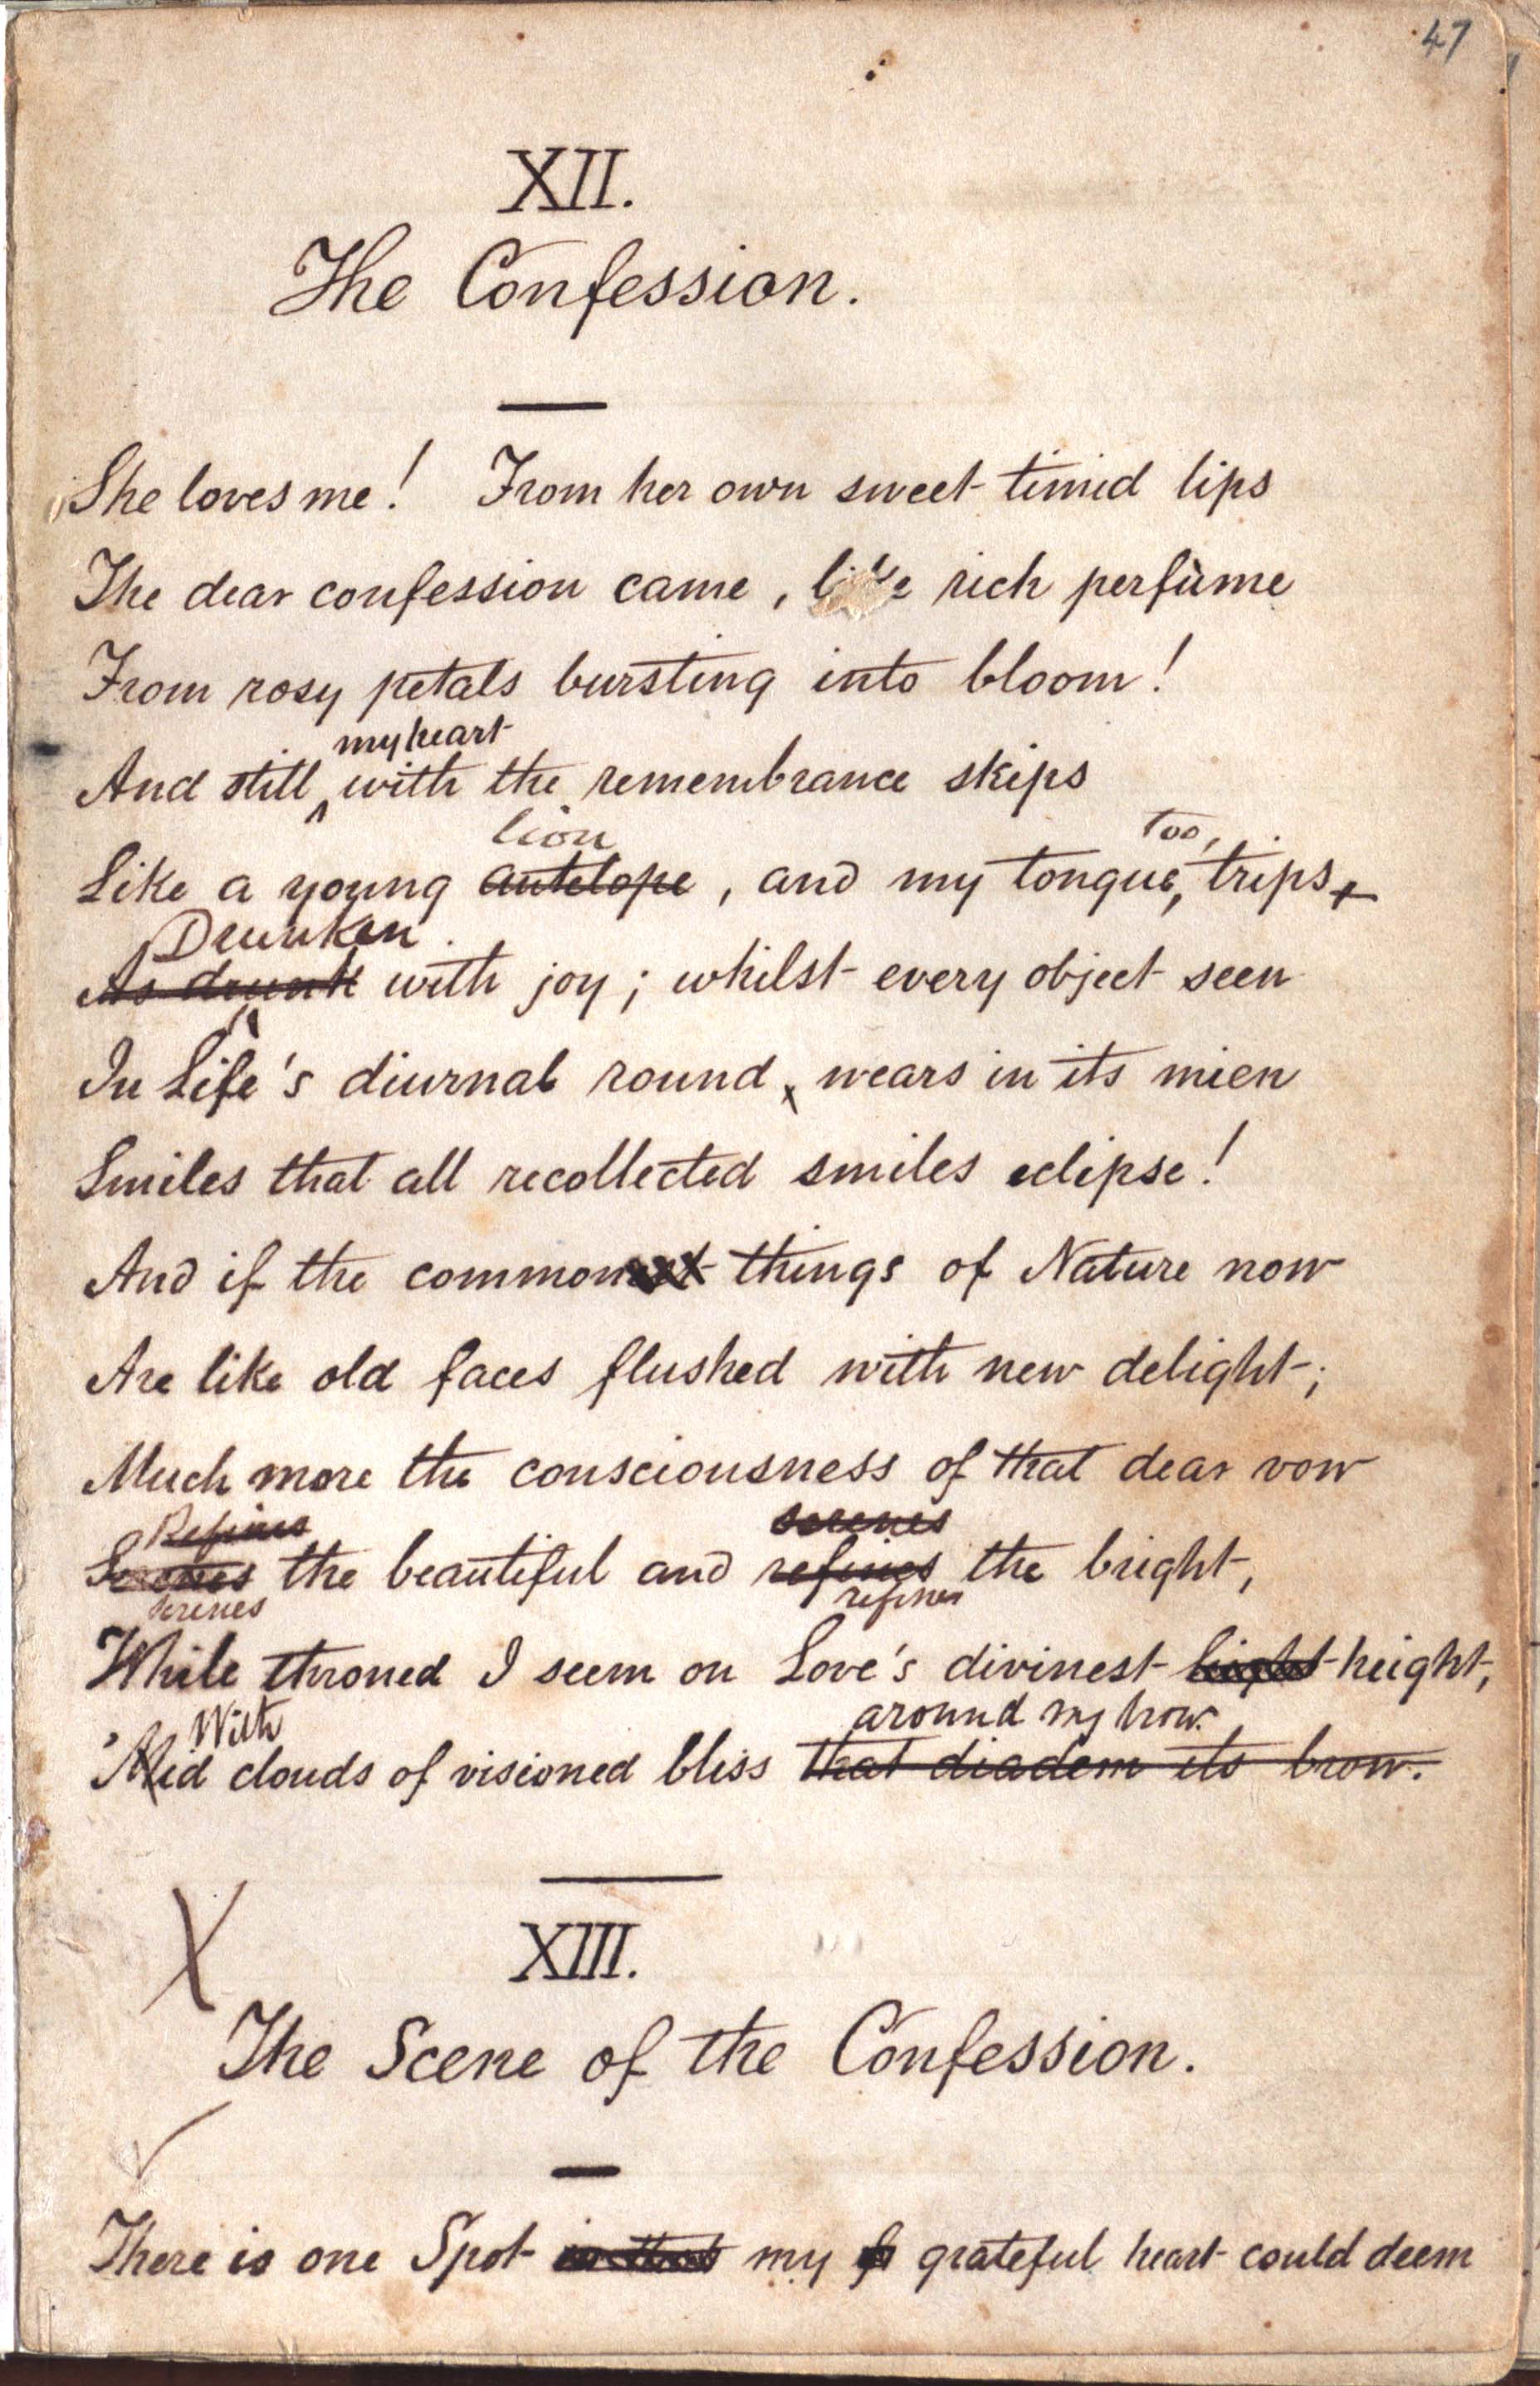 47
XII.
The Confession.
She loves me! From her own sweet timid lips
The dear confession came, like rich perfùme
From rosy petals bursting into bloom!
my heart
And still ‸ with the remembrance skips
lion too,
Like a young antelope, and my tongue, trips
Drunken
As drunk with joy; whilst every object seen
In Life's diurnal round, wears in its mien
Smiles that all recollected smiles eclipse!
And if the commonest things of Nature now
Are like old faces flushed with new delight;
Much more the consciousness of that dear vow
Refines serenes
Serenes the beautiful and refines the bright,
serenes refines
While throned I seem on Love's divinest height,
With around my brow.
'Mid clouds of visioned bliss that diadem its brow.
X
XIII.
The Scene of the Confession.
There is one Spot my grateful heart could deem